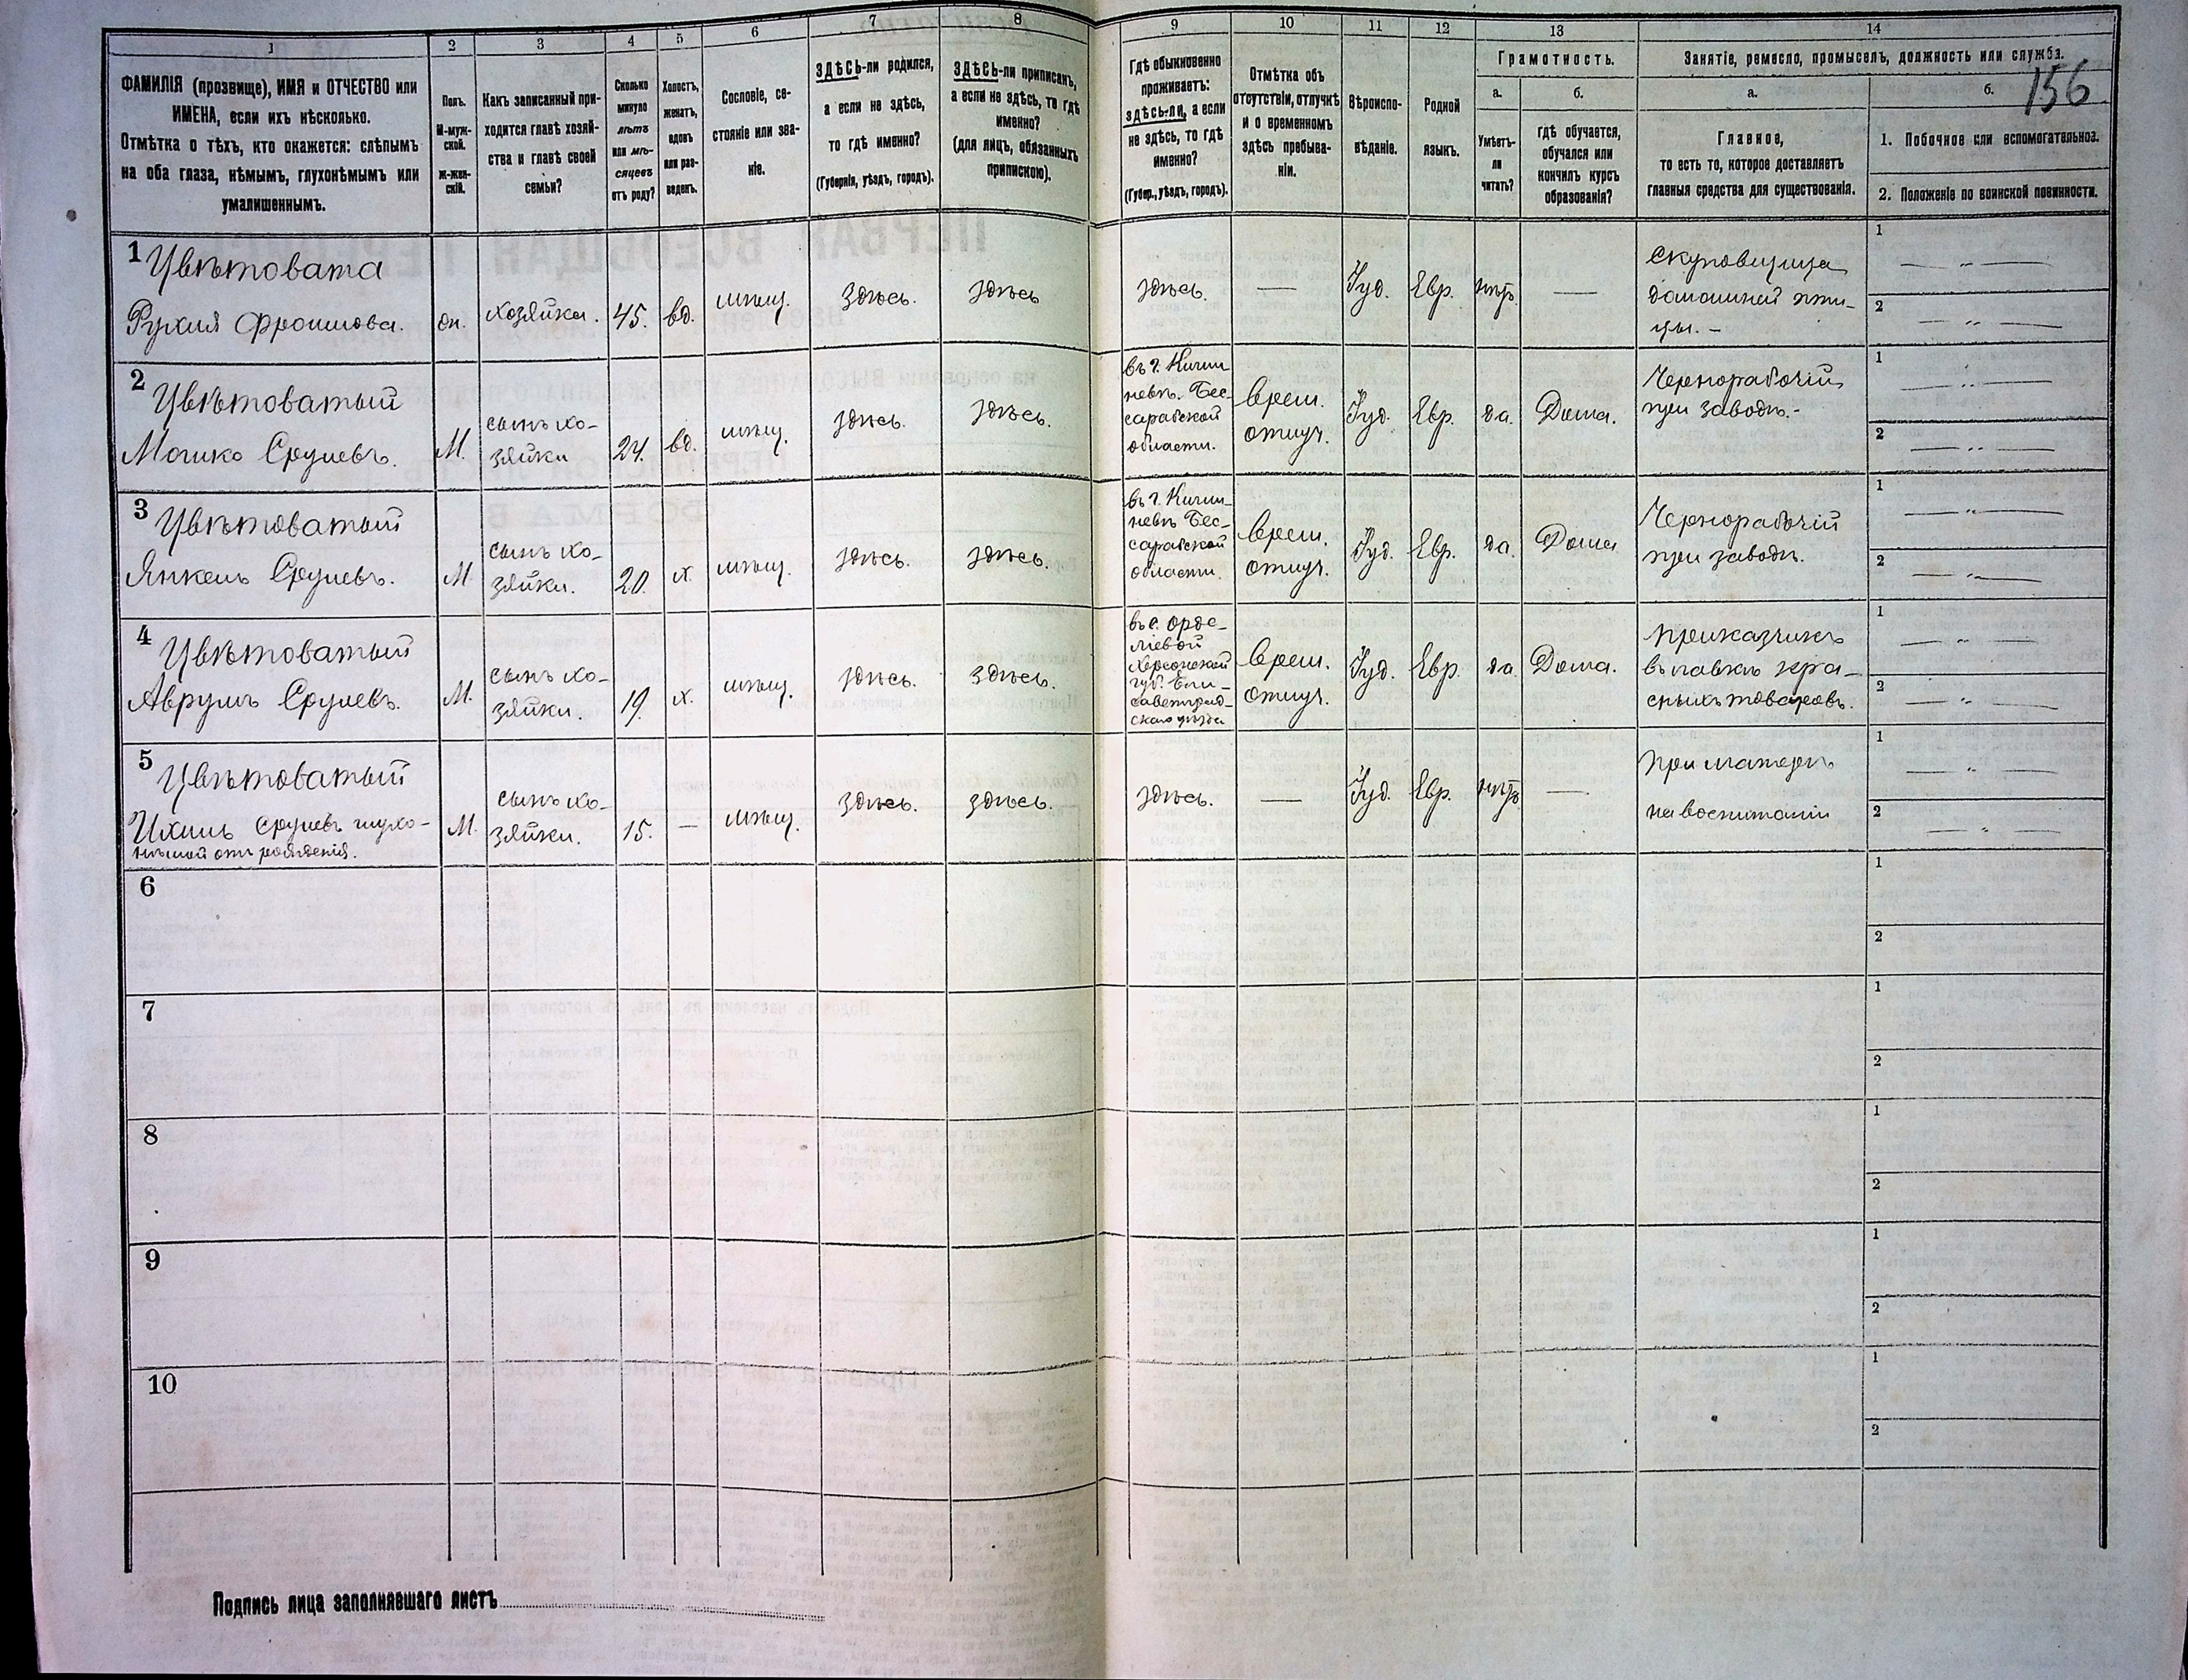 1 2 3 4 5 6 7 8 9 10 11 12 13 14
156
ФАМИЛІЯ (прозвище), ИМЯ и ОТЧЕСТВО или
ИМЕНА, если ихъ нѣсколько.
Отмѣтка о тѣхъ, кто окажется: слѣпымъ
на оба глаза, нѣмымъ, глухонѣмымъ или
умалишеннымъ.
Полъ.
М-муж-
ской.
Ж-жен-
скій.
Какъ записанный при-
ходится главѣ хозяй-
ства и главѣ своей
семьи?
Сколько
минуло
лѣтъ
или мѣ-
сяцевъ
отъ роду?
Холостъ,
женатъ,
вдовъ
или раз-
веденъ.
Сословіе, со-
стояніе или зва-
ніе.
ЗДѢСЬ-ли родился,
а если не здѣсь,
то гдѣ именно?
(Губернія, уѣздъ, городъ).
ЗДѢСЬ-ли приписанъ,
а если не здѣсь, то гдѣ
именно?
(для лицъ, обязанныхъ
припискою).
Гдѣ обыкновенно
проживаетъ:
здѣсь-ли, а если
не здѣсь, то гдѣ
именно?
(Губер., уѣздъ, городъ).
Отмѣтка объ
отсутствіи, отлучкѣ
и о временномъ
здѣсь пребыва-
ніи.
Вѣроиспо-
вѣданіе.
Родной
языкъ.
Грамотность.
а.
Умѣетъ-
ли
читать?
б.
гдѣ обучается,
обучался или
кончилъ курсъ
образованія?
Занятіе, ремесло, промыселъ, должность или служба.
а.
Главное,
то есть то, которое доставляетъ
главныя средства для существованія.
б.
1. Побочное или вспомогательное.
2. Положеніе по воинской повинности.
1 Цвѣтовата
Рухля Фроимова.
хозяйка.
45.
вд.
мѣщ.
здѣсь.
здѣсь
здѣсь.
—
Іуд.
Евр.
нѣтъ
—
скуповщица
домашней пти-
цы. –
1 — „ —
2 — „ —
2 Цвѣтоватый
Мошко Срулевъ.
М.
сынъ хо-
зяйки
24.
вд.
мѣщ.
здѣсь.
здѣсь.
въ г. Киши
невѣ. Бес-
сарабской
области.
врем.
отлуч.
Іуд.
Евр.
да.
Дома.
Чернорабочій
при заводѣ.-
1 — „ —
2 — „ —
3 Цвѣтоватый
Янкель Срулевъ.
М.
сынъ хо-
зяйки.
20.
х.
мѣщ.
здѣсь.
здѣсь.
въ г. Киши-
невѣ Бес-
сарабской
области.
врем.
отлуч.
Іуд.
Евр.
да.
Дома
Чернорабочій
при заводѣ.
1 — „ —
2 — „ —
4 Цвѣтоватый
Аврумъ Срулевъ.
М.
сынъ хо-
зяйки.
19.
х.
мѣщ.
здѣсь.
здѣсь.
Херсонской
губ. Ели-
саветград-
скаго уѣзда
врем.
отлуч.
Іуд.
Евр.
да.
Дома.
приказчикъ
въ лавкѣ кра-
сныхъ товаровъ.
1 — „ —
2 — „ —
5 Цвѣтоватый
Ихиль Срулевъ глухо-
нѣмой отъ рожденія.
М.
сынъ хо-
зяйки.
15.
—
мѣщ.
здѣсь.
здѣсь.
здѣсь.
—
Іуд.
Евр.
нѣтъ
—
При матери
на воспитаніи
1 — „ —
2 — „ —
6
1
2
7
1
2
8
1
2
9
1
2
10
1
2
Подпись лица заполнявшаго листъ